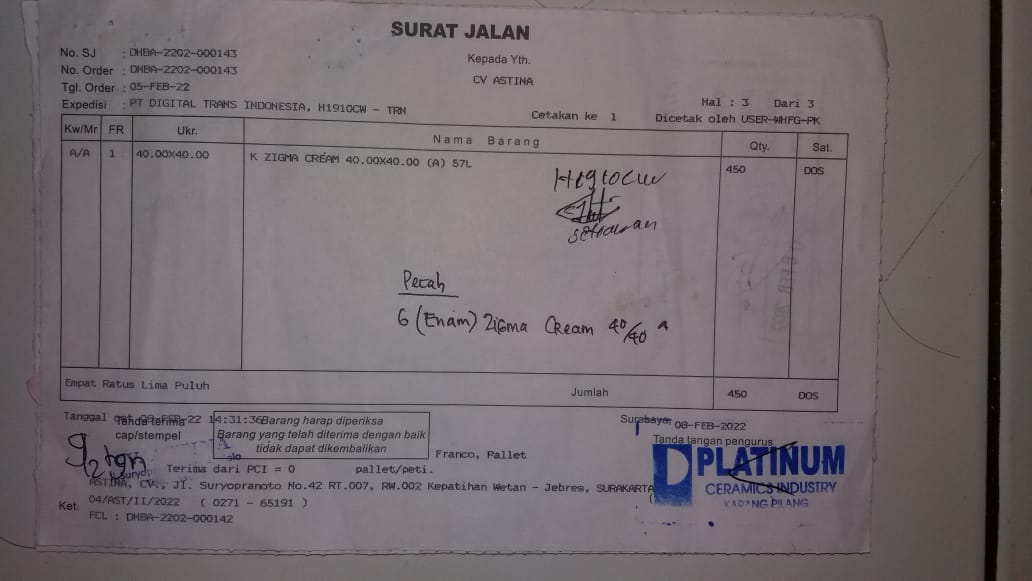 SURAT JALAN
No. SJ : DHBA-2202-000143
Kepada Yth.
No. Order : DHBA-2202-000143
CV ASTINA
Tgl. Order : 05-FEB-22
Hal : 3 Dari 3
Expedisi : PT DIGITAL TRANS INDONESIA, H1910CW - TRN
Cetakan ke 1
Dicetak oleh USER-WHFG-PK
Kw/Mr FR Ukr. Nama Barang Qty. Sat.
A/A 1 40.00X40.00 K ZIGMA CREAM 40.00X40.00 (A) 57L 450 DOS
H1910CW
Pecah
6 (Enam) Zigma Cream 40/40 A
Empat Ratus Lima Puluh Jumlah 450 DOS
Tanggal 08-FEB-22 14:31:36
Tanda terima
cap/stempel
Barang harap diperiksa
Barang yang telah diterima dengan baik
tidak dapat dikembalikan
Surabaya, 08-FEB-2022
Tanda tangan pengurus
Franco, Pallet
Terima dari PCI = 0 pallet/peti.
ASTINA, CV., Jl. Suryopranoto No.42 RT.007, RW.002 Kepatihan Wetan - Jebres, SURAKARTA
Ket. 04/AST/II/2022 ( 0271 - 65191 )
FCL : DHBA-2202-000142
PLATINUM
CERAMICS INDUSTRY
KARANG PILANG